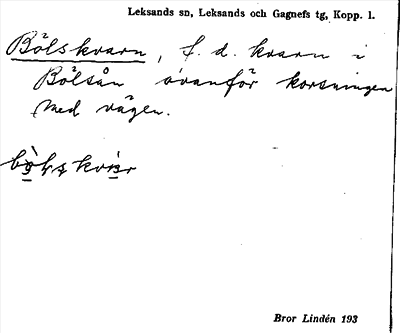 Leksands sn, Leksands och Gagnefs tg, Kopp. l.
Bölskvarn, f. d. kvarn i
Bölsån ovanför korsningen
med vägen.
Bror Lindén 193